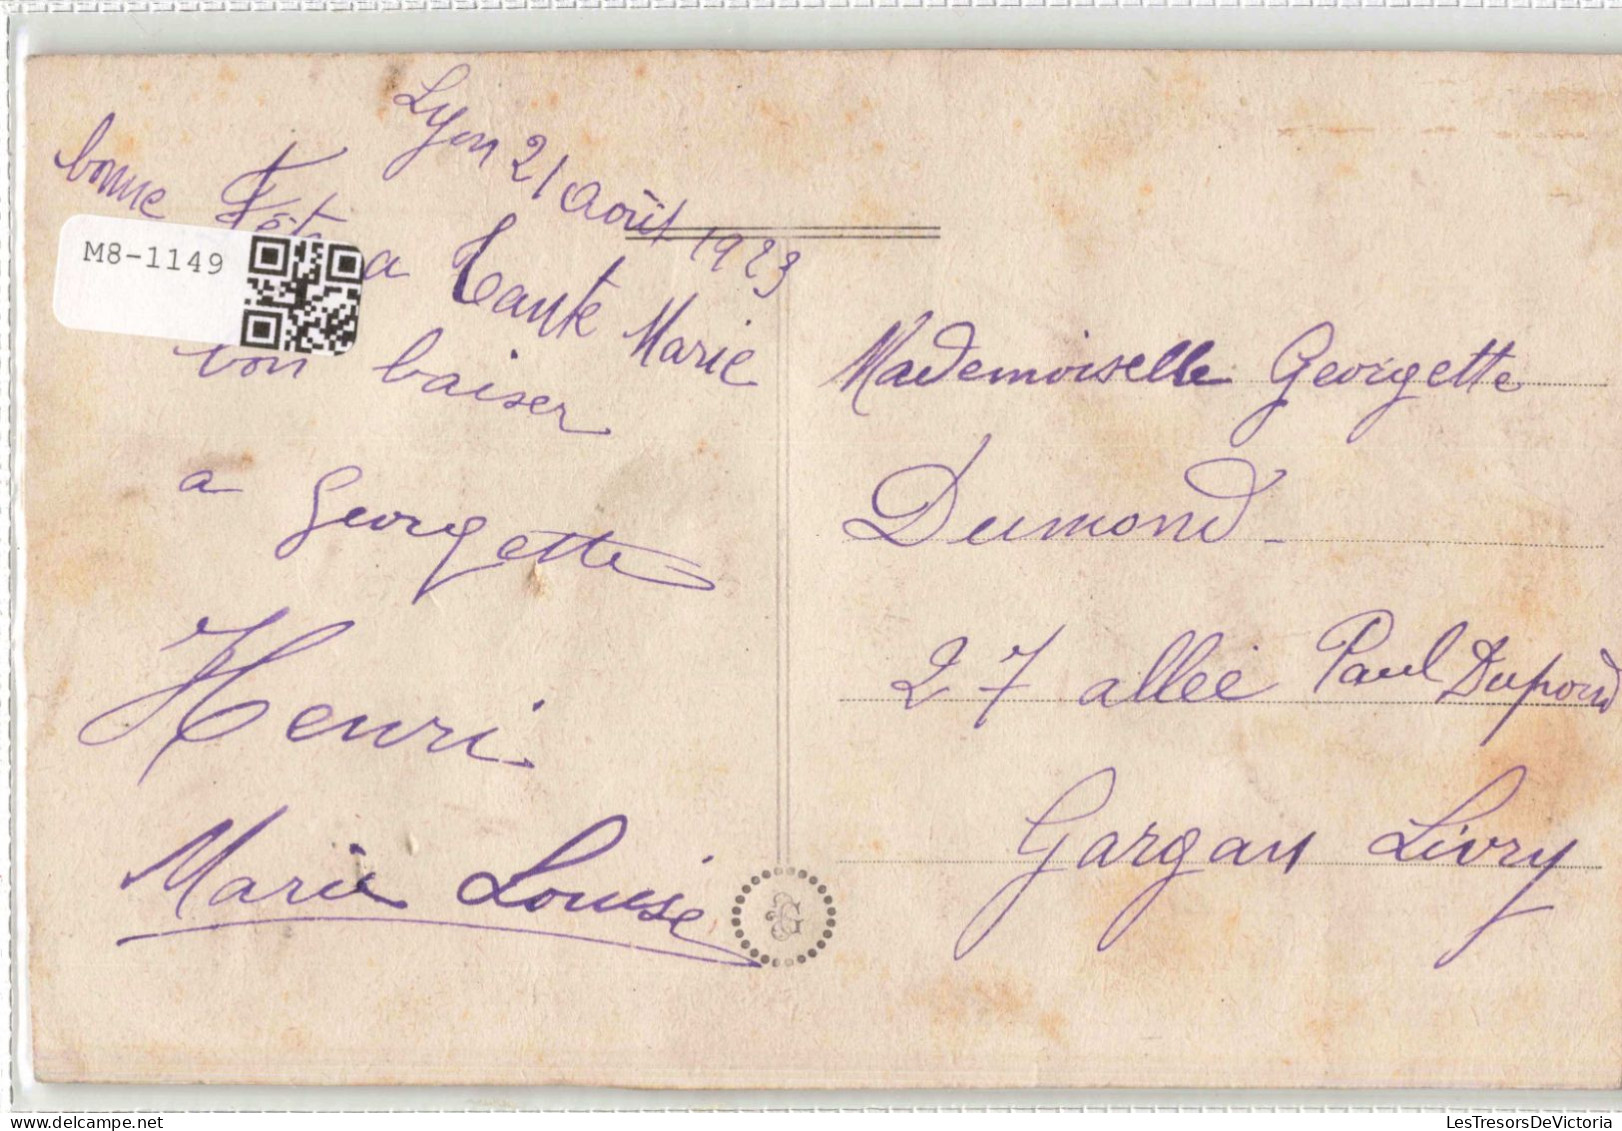 Lyon 21 Août 1923
bonne Fête a Tante Marie
bon baiser
a Georgette
Henri
Marie Louise
M8-1149
Mademoiselle Georgette
Dumond
27 allée Paul Dupond
Gargan Livry
LesTresorsDeVictoria